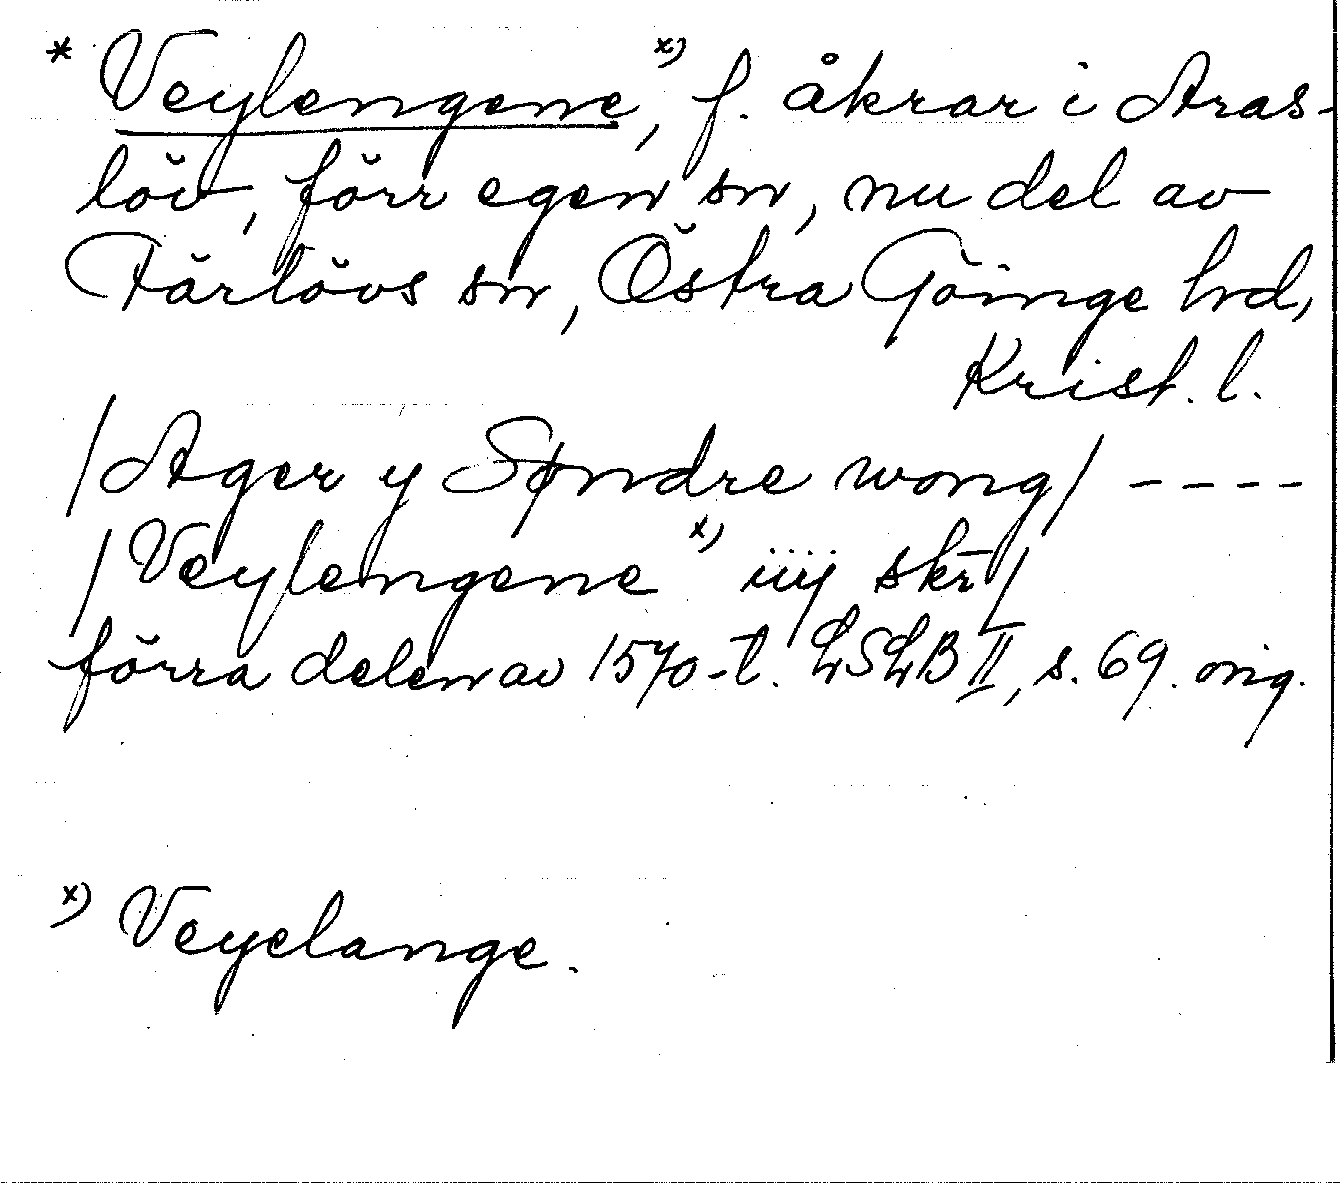 * Veylengene, x) f. åkrar i Aras-
löv, förr egen sn, nu del av
Färlövs sn, Östra Göinge hd,
Krist. l.
/Ager y Søndre wong/ ----
/Veylengene x) iiij skr̄/
förra delen av 1570-t. LSLB II, s. 69. orig.
x) Veyelange.